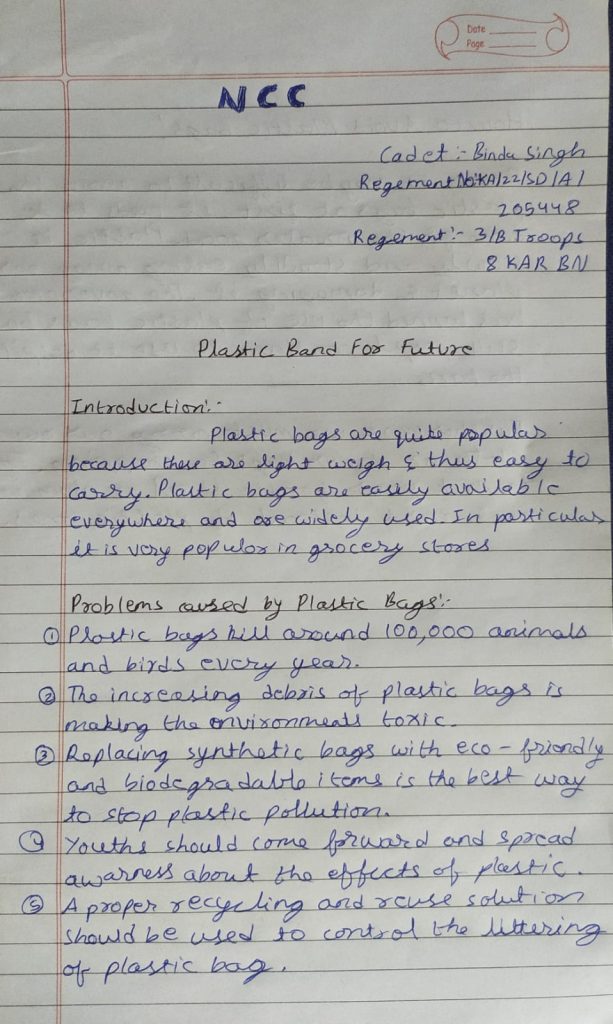 Date
Page
NCC
Cadet :- Bindu Singh
Regement No:-KA/22/SD/A/
205448
Regement :- 3/B Troops
8 KAR BN
Plastic Band For Future
Introduction :-
Plastic bags are quite popular
because these are light weigh & thus easy to
carry. Plastic bags are easily available
everywhere and are widely used. In particular
it is very popular in grocery stores
Problems caused by Plastic Bags :-
① Plastic bags kill around 100,000 animals
and birds every year.
② The increasing debris of plastic bags is
making the environments toxic.
③ Replacing synthetic bags with eco - friendly
and biodegradable items is the best way
to stop plastic pollution.
④ Youths should come forward and spread
awarness about the effects of plastic.
⑤ A proper recycling and reuse solution
should be used to control the littering
of plastic bag.